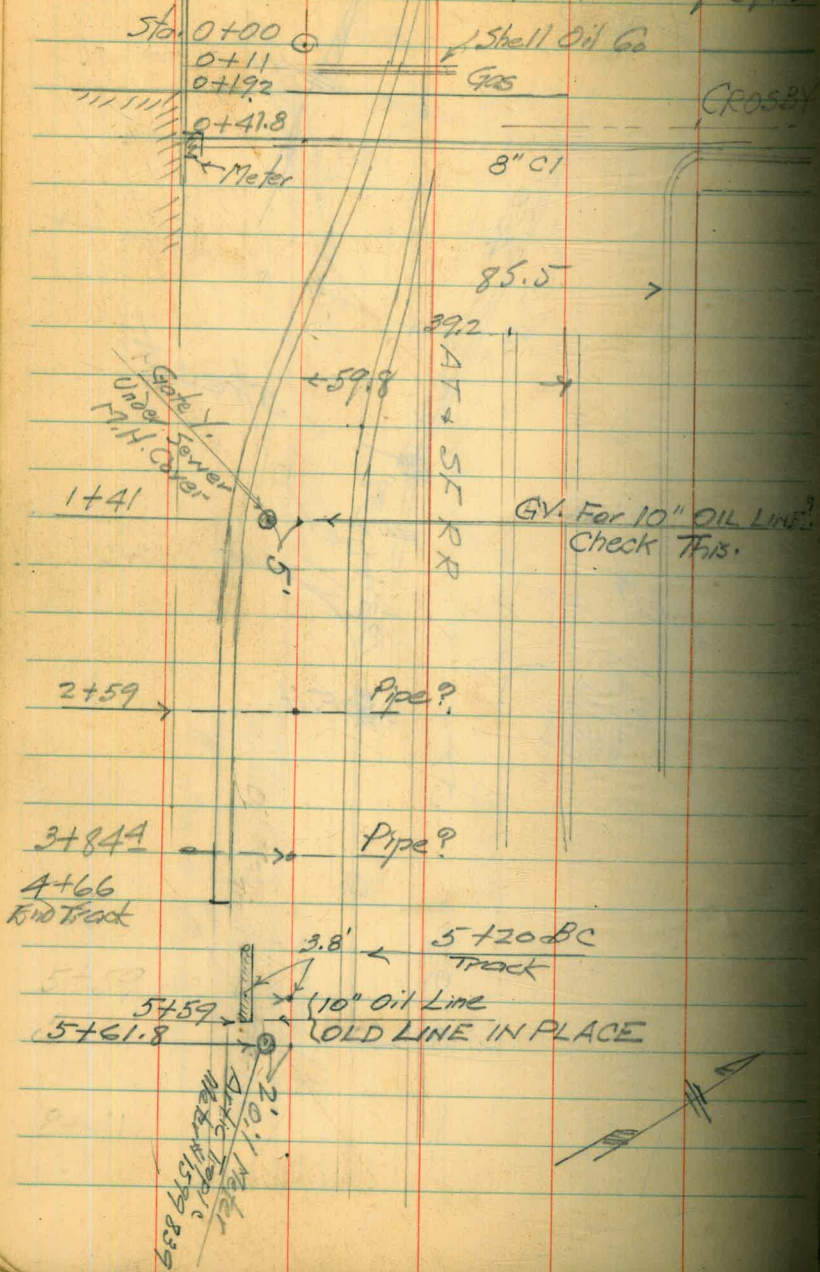 Sta. 0+00
Shell Oil Co
0+11
Gas
0+19.2
CROSBY
0+41.8
Meter
8" CI
85.5
39.2
59.8
AT & SF RR
Gate V.
Under Sewer
M.H. Cover
1+41
GV. For 10" OIL LINE?
Check This.
5'
2+59
Pipe?
3+84.4
Pipe?
4+66
End Track
3.8'
5+20 BC
Track
5+59
10" Oil Line
5+61.8
OLD LINE IN PLACE
2'
Oil Meter
Artic Tropic
Meter # 1599839